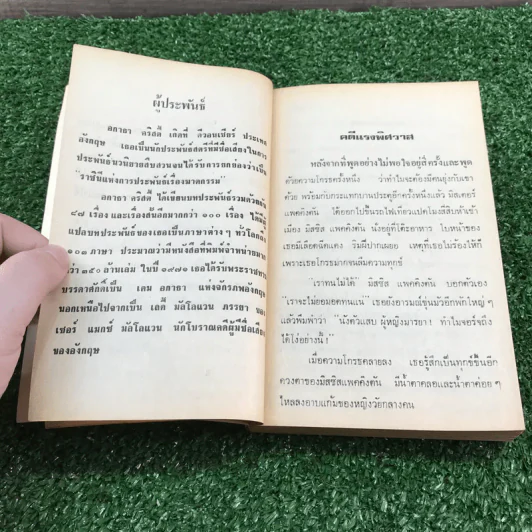 ผู้ประพันธ์
อกาธา คริสตี้ เกิดที่ ดีวอนเชียร์ ประเทศ
อังกฤษ เธอเป็นนักประพันธ์สตรีที่มีชื่อเสียงในการ
ประพันธ์นวนิยายสืบสวนจนได้รับการยกย่องว่าเป็น
"ราชินีแห่งการประพันธ์เรื่องฆาตกรรม"
อกาธา คริสตี้ ได้เขียนบทประพันธ์รวมด้วยกัน
๘๗ เรื่อง และเรื่องสั้นอีกมากกว่า ๑๐๐ เรื่อง ได้มีผู้
แปลบทประพันธ์ของเธอเป็นภาษาต่างๆ ทั่วโลก
๑๐๓ ภาษา ประมาณว่ามีหนังสือที่พิมพ์จำหน่าย
ว่า ๓๕๐ ล้านเล่ม ในปี ๑๙๗๑ เธอได้รับพระราชทาน
บรรดาศักดิ์เป็น เดม อกาธา แห่งจักรภพอังกฤษ
นอกเหนือไปจากเป็น เลดี้ มัลโลแวน ภรรยา ของ
เซอร์ แมกซ์ มัลโลแวน นักโบราณคดีผู้มีชื่อเสียง
ของอังกฤษ
คดีแรงพิศวาส
หลังจากที่พูดอย่างไม่พอใจอยู่สี่ครั้งและพูด
ด้วยความโกรธครั้งหนึ่ง ว่าทำไมจะต้องมีคนยุ่งกับเขา
ด้วย พร้อมกับกระแทกบานประตูอีกครั้งหนึ่งแล้ว มิสเตอร์
แพคคิงตัน ได้ออกไปขึ้นรถไฟเที่ยวแปดโมงสี่สิบห้าเข้า
เมือง มิสซิส แพคคิงตัน นั่งอยู่ที่โต๊ะอาหาร ใบหน้าของ
เธอมีเลือดฉีดแดง ริมฝีปากเผยอ เหตุที่เธอไม่ร้องไห้ก็
เพราะเธอโกรธมากจนลืมความทุกข์
"เราทนไม่ได้ มิสซิส แพคคิงตัน บอกตัวเอง
"เราจะไม่ยอมอดทนแน่" เธออยู่อารมณ์ขุ่นมัวอีกพักใหญ่ ๆ
แล้วพึมพำว่า "นังตัวแสบ ผู้หญิงมารยา ! ทำไมจอร์จถึง
ได้โง่อย่างนี้ !"
เมื่อความโกรธคลายลง เธอรู้สึกเป็นทุกข์ขึ้นอีก
ดวงตาของมิสซิสแพคคิงตัน มีน้ำตาคลอและน้ำตาค่อย ๆ
ไหลลงอาบแก้มของหญิงวัยกลางคน